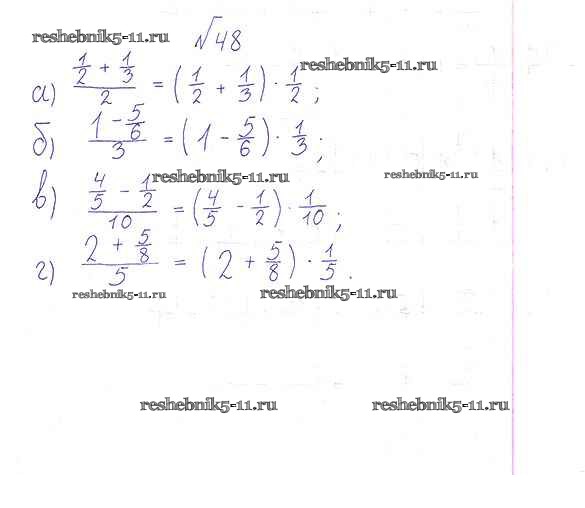 reshebnik5-11.ru
№48
reshebnik5-11.ru
а) (1/2 + 1/3)/2 = (1/2 + 1/3) · 1/2;
б) (1 - 5/6)/3 = (1 - 5/6) · 1/3;
reshebnik5-11.ru
reshebnik5-11.ru
в) (4/5 - 1/2)/10 = (4/5 - 1/2) · 1/10;
г) (2 + 5/8)/5 = (2 + 5/8) · 1/5.
reshebnik5-11.ru
reshebnik5-11.ru
reshebnik5-11.ru
reshebnik5-11.ru